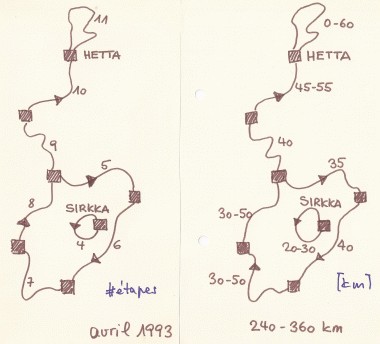 11
HETTA
10
9
5
8
SIRKKA
4
6
7
#étapes
avril 1993
0-60
HETTA
45-55
40
35
30-50
SIRKKA
20-30
40
30-50
[km]
240-360 km